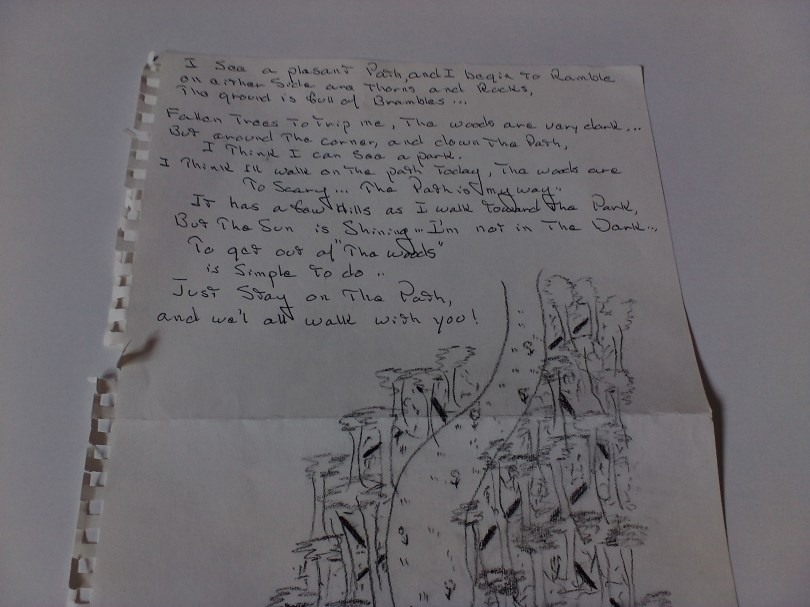 I See a plesant Path, and I begin To Ramble
on either Side are Thorns and Rocks,
The ground is full of Brambles...
Fallen Trees To Trip me, The woods are very dark...
But around The corner, and down The Path,
I Think I can See a park.
I Think I'll walk on The path Today, The woods are
To Scary... The Path is my way..
It has a few Hills as I walk toward the Park,
But The Sun is Shining... I'm not in The Dark...
To get out of "The woods"
is Simple To do..
Just Stay on The Path,
and we'l all walk with you!